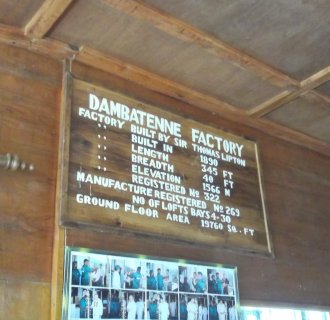 DAMBATENNE FACTORY
FACTORY BUILT BY SIR THOMAS LIPTON
,, BUILT IN 1890
,, LENGTH 345 FT
,, BREADTH 40 FT
,, ELEVATION 1566 M
,, REGISTERED No 322
MANUFACTURE REGISTERED No 269
NO OF LOFTS BAYS 4-30
GROUND FLOOR AREA 19760 SQ. FT